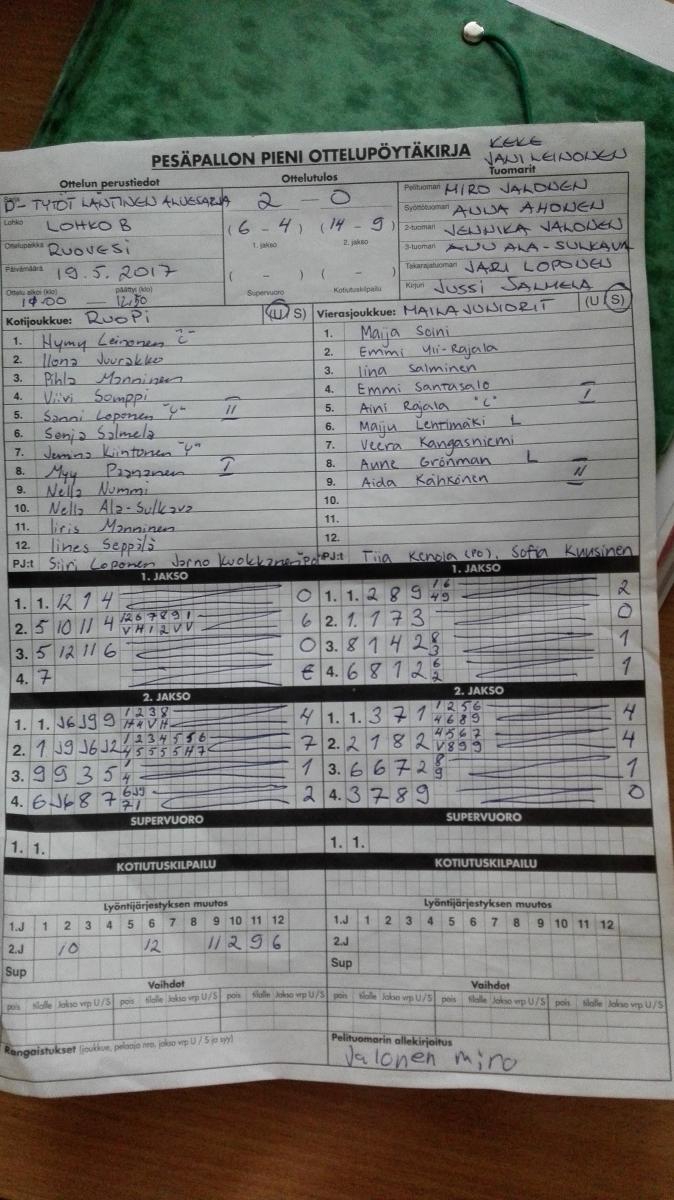 PESÄPALLON PIENI OTTELUPÖYTÄKIRJA
KEKE
JANI LEINONEN
Ottelun perustiedot
Ottelutulos
Tuomarit
D-TYTÖT LÄNTINEN ALUESARJA
2 – 0
Pelituomari MIRO JALONEN
Lohko LOHKO B
(6 - 4) (14 - 9)
Syöttötuomari ANNA AHONEN
1. jakso 2. jakso
2-tuomari JENNIKA JALONEN
Ottelupaikka RUOVESI
3-tuomari ANU ALA-SULKAVA
Päivämäärä 19.5.2017
( - ) ( - )
Takarajatuomari JARI LOPONEN
Ottelu alkoi (klo) päättyi (klo)
Supervuoro Kotiutuskilpailu
Kirjuri JUSSI SALMELA
Kotijoukkue: RUOPI (U S)
Vierasjoukkue: MAILAJUNIORIT (U S)
1. Nymy Leinonen "C"
1. Maija Soini
2. Ilona Juurakko
2. Emmi Yli-Rajala
3. Pihla Manninen
3. Iina Salminen
4. Viivi Somppi
4. Emmi Santasalo I
5. Sanni Loponen "L" II
5. Aini Rajala "C"
6. Senja Salmela
6. Maiju Lehtimäki L
7. Jemina Kiintonen "L"
7. Veera Kangasniemi
8. Myy Paananen I
8. Anne Grönman L
9. Nella Nummi
9. Aida Kähkönen II
10. Nella Ala-Sulkava
10.
11. Iiris Manninen
11.
12. Iines Seppälä
12.
PJ:t Siiri Loponen Jarno Kuokkanen
PJ:t Tiia Kenola (PO), Sofia Kuusinen
1. JAKSO
1. JAKSO
1. 1. 12 1 4 0
1. 1. 1 2 8 9 16 49 2
2. 5 10 11 4 1 2 6 7 8 9 1 V H 1 2 V V 6
2. 1. 1 7 3 0
3. 5 12 11 6 0
3. 8 1 4 2 8 3 1
4. 7
4. 6 8 1 2 6 2 1
2. JAKSO
2. JAKSO
1. 1. J6 J9 9 1 2 3 8 H 4 V H 4
1. 1. 3 7 1 1 2 5 6 4 6 8 9 4
2. 1 J9 J6 J2 1 2 3 4 5 5 6 4 5 5 5 5 H 7 7
2. 2 1 8 2 4 5 6 7 V 8 9 9 4
3. 9 9 3 5 1 4 1
3. 6 6 7 2 8 9 1
4. 6 J6 8 7 6 J9 7 1 2
4. 3 7 8 9 0
SUPERVUORO
SUPERVUORO
1. 1.
1. 1.
KOTIUTUSKILPAILU
KOTIUTUSKILPAILU
Lyöntijärjestyksen muutos
Lyöntijärjestyksen muutos
1.J 1 2 3 4 5 6 7 8 9 10 11 12
1.J 1 2 3 4 5 6 7 8 9 10 11 12
2.J 10 12 11 2 9 6
2.J
Sup
Sup
Vaihdot
Vaihdot
pois tilalle Jakso vrp U/S pois tilalle Jakso vrp U/S
pois tilalle Jakso vrp U/S pois tilalle Jakso vrp U/S
Rangaistukset (joukkue, pelaaja nro, jakso vrp U / S ja syy)
Pelituomarin allekirjoitus
Jalonen miro